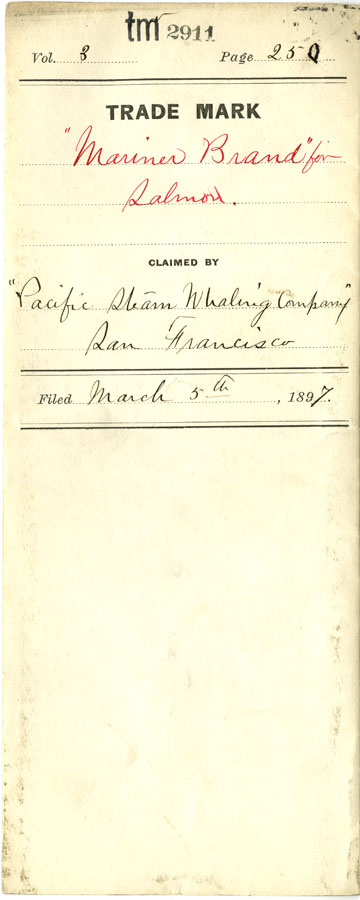 tm 2911
Vol. 8 Page 250
TRADE MARK
"Mariner Brand" for
Salmon.
CLAIMED BY
"Pacific Steam Whaling Company"
San Francisco
Filed March 5th, 1897.